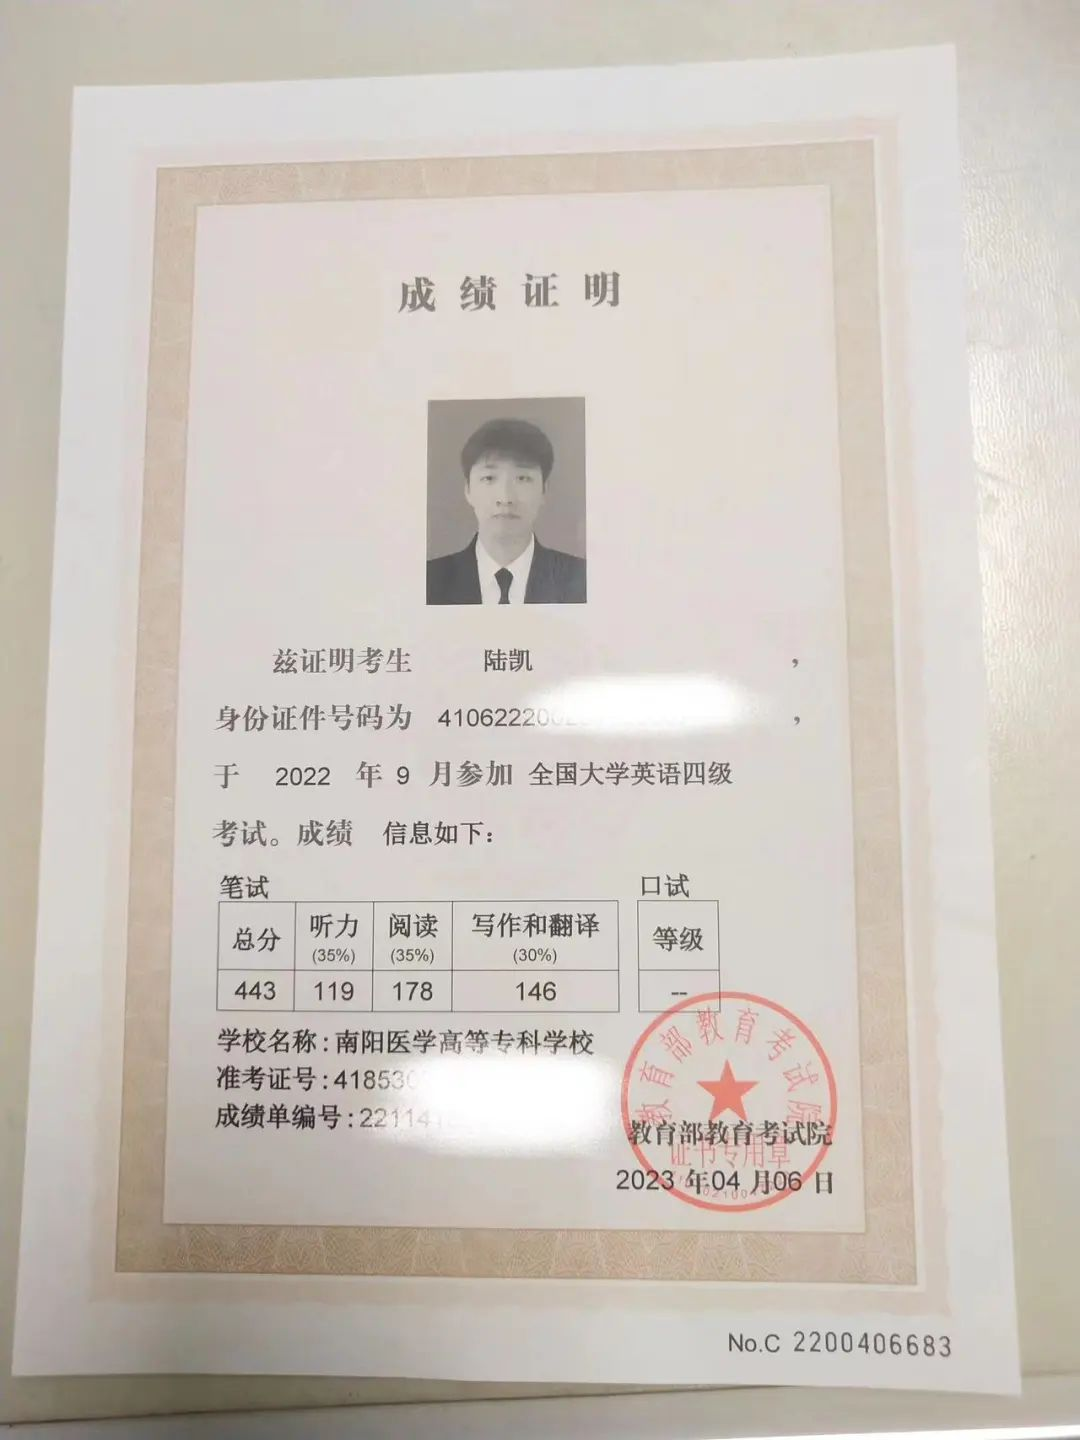 成绩证明
兹证明考生 陆凯 ，
身份证件号码为 410622200 ，
于 2022 年 9 月参加 全国大学英语四级
考试。成绩 信息如下：
笔试 口试
总分 听力 (35%) 阅读 (35%) 写作和翻译 (30%) 等级
443 119 178 146 --
学校名称：南阳医学高等专科学校
准考证号：418530
成绩单编号：221141
教育部教育考试院
证书专用章
教育部教育考试院
2023 年04 月06 日
No.C 2200406683